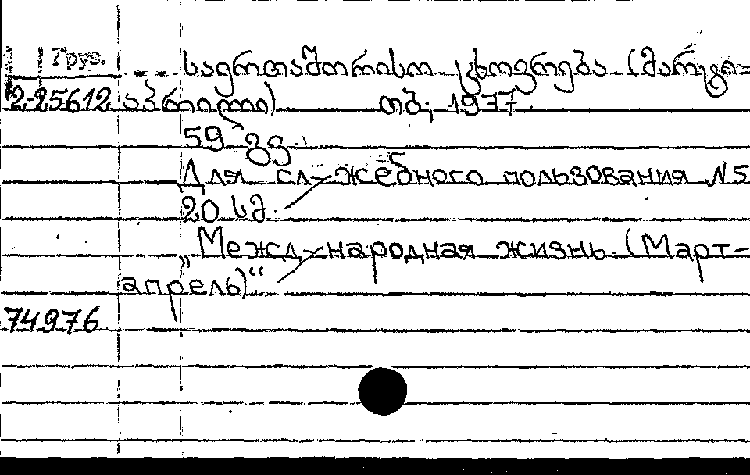 Груз.
საერთაშორისო ცხოვრება (მარტი-
2-25612 აპრილი) თბ; 1977.
59 გვ.
Для служебного пользования №5
20 სმ.
„Международная жизнь (Март-
апрель)“
74976